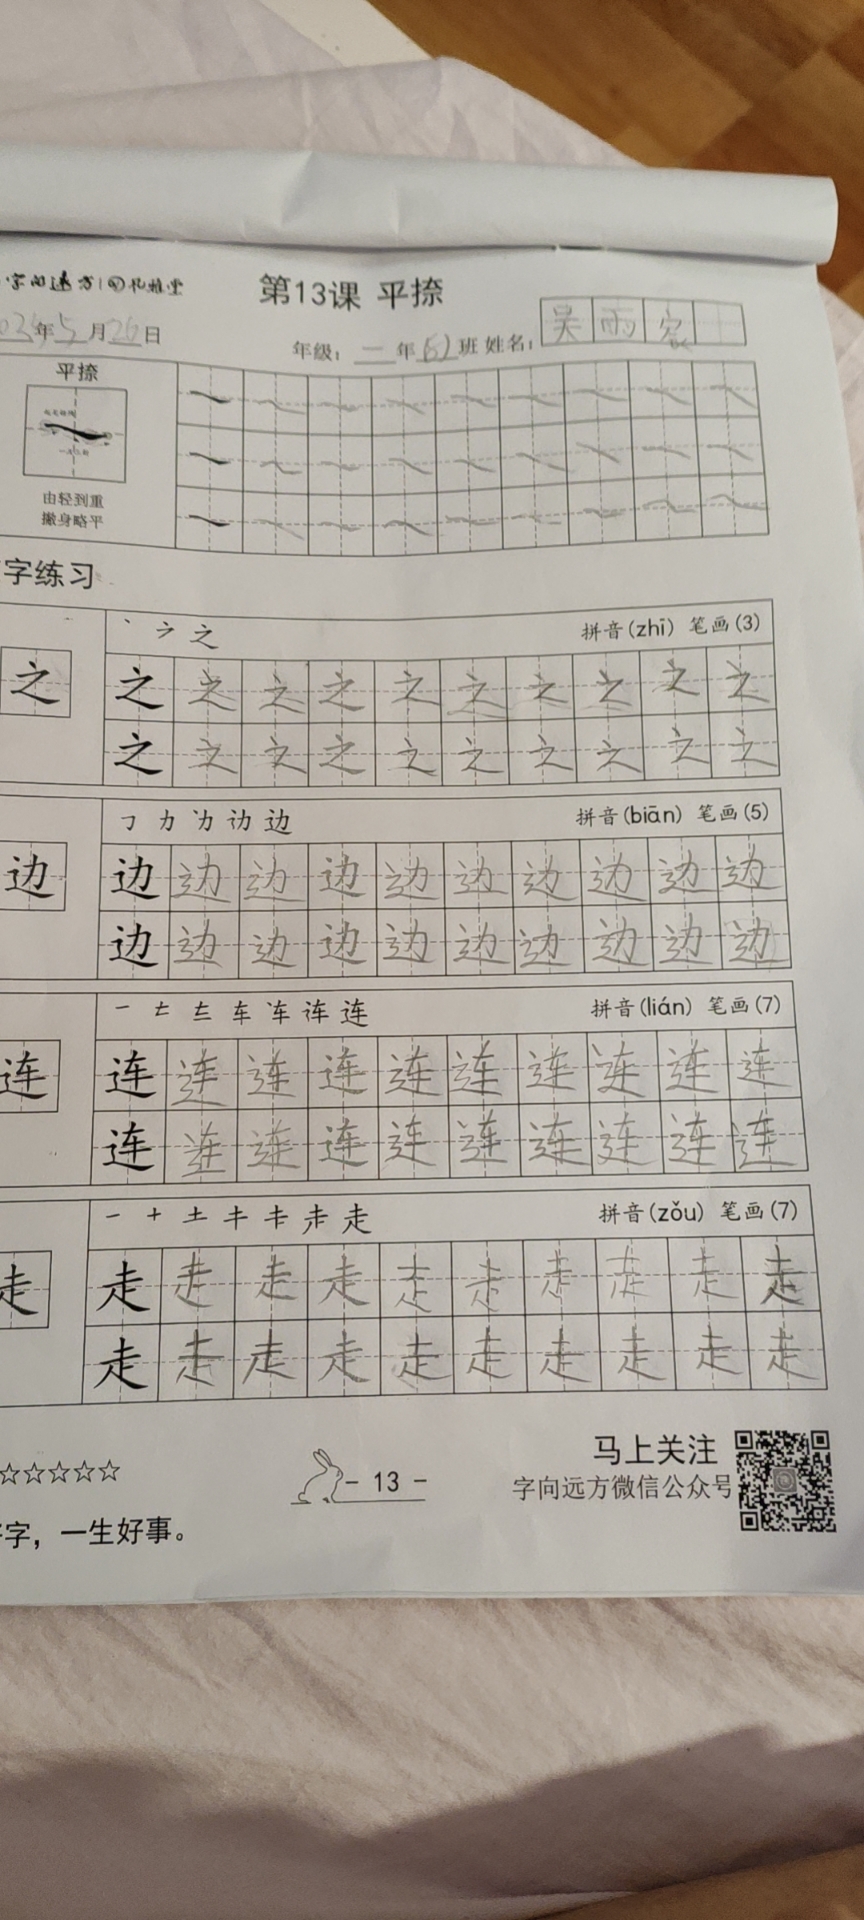 字向远方
第13课 平捺
年5月26日
年级：一年 班 姓名：吴雨
平捺
由轻到重
撇身略平
字练习
丶 之 拼音(zhī) 笔画(3)
之 之 之 之 之 之 之 之 之 之 之
之 之 之 之 之 之 之 之 之 之
力 边 拼音(biān) 笔画(5)
边 边 边 边 边 边 边 边 边 边 边
边 边 边 边 边 边 边 边 边 边
一 车 连 连 拼音(lián) 笔画(7)
连 连 连 连 连 连 连 连 连 连 连
连 连 连 连 连 连 连 连 连 连
一 十 土 走 拼音(zǒu) 笔画(7)
走 走 走 走 走 走 走 走 走 走 走
走 走 走 走 走 走 走 走 走 走
☆☆☆☆☆
- 13 -
马上关注
字向远方微信公众号
字，一生好事。